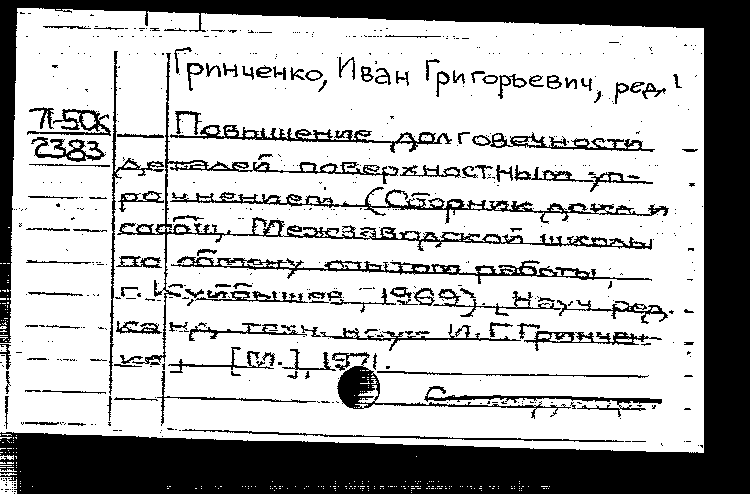 Гринченко, Иван Григорьевич, ред.
71-50к
2383
Повышение долговечности
деталей поверхностным уп-
рочнением. (Сборник докл. и
сообщ. Межзаводской школы
по обмену опытом работы,
г. Куйбышев, 1969). [Науч. ред.
канд. техн. наук И.Г. Гринчен
ко]. [М.], 1971.